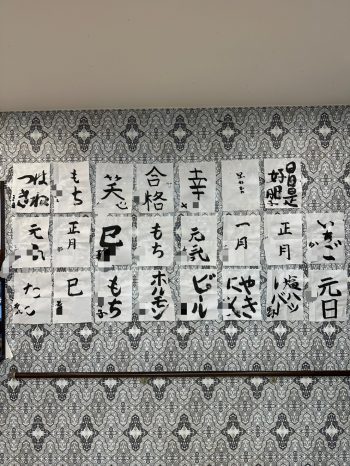 幸
合格
笑
もち
はね
つき
いちご
正月
一月
元気
もち
巳
正月
元
元日
塩ハツ
やき
にく
ビール
ホルモン
もち
巳
たこ